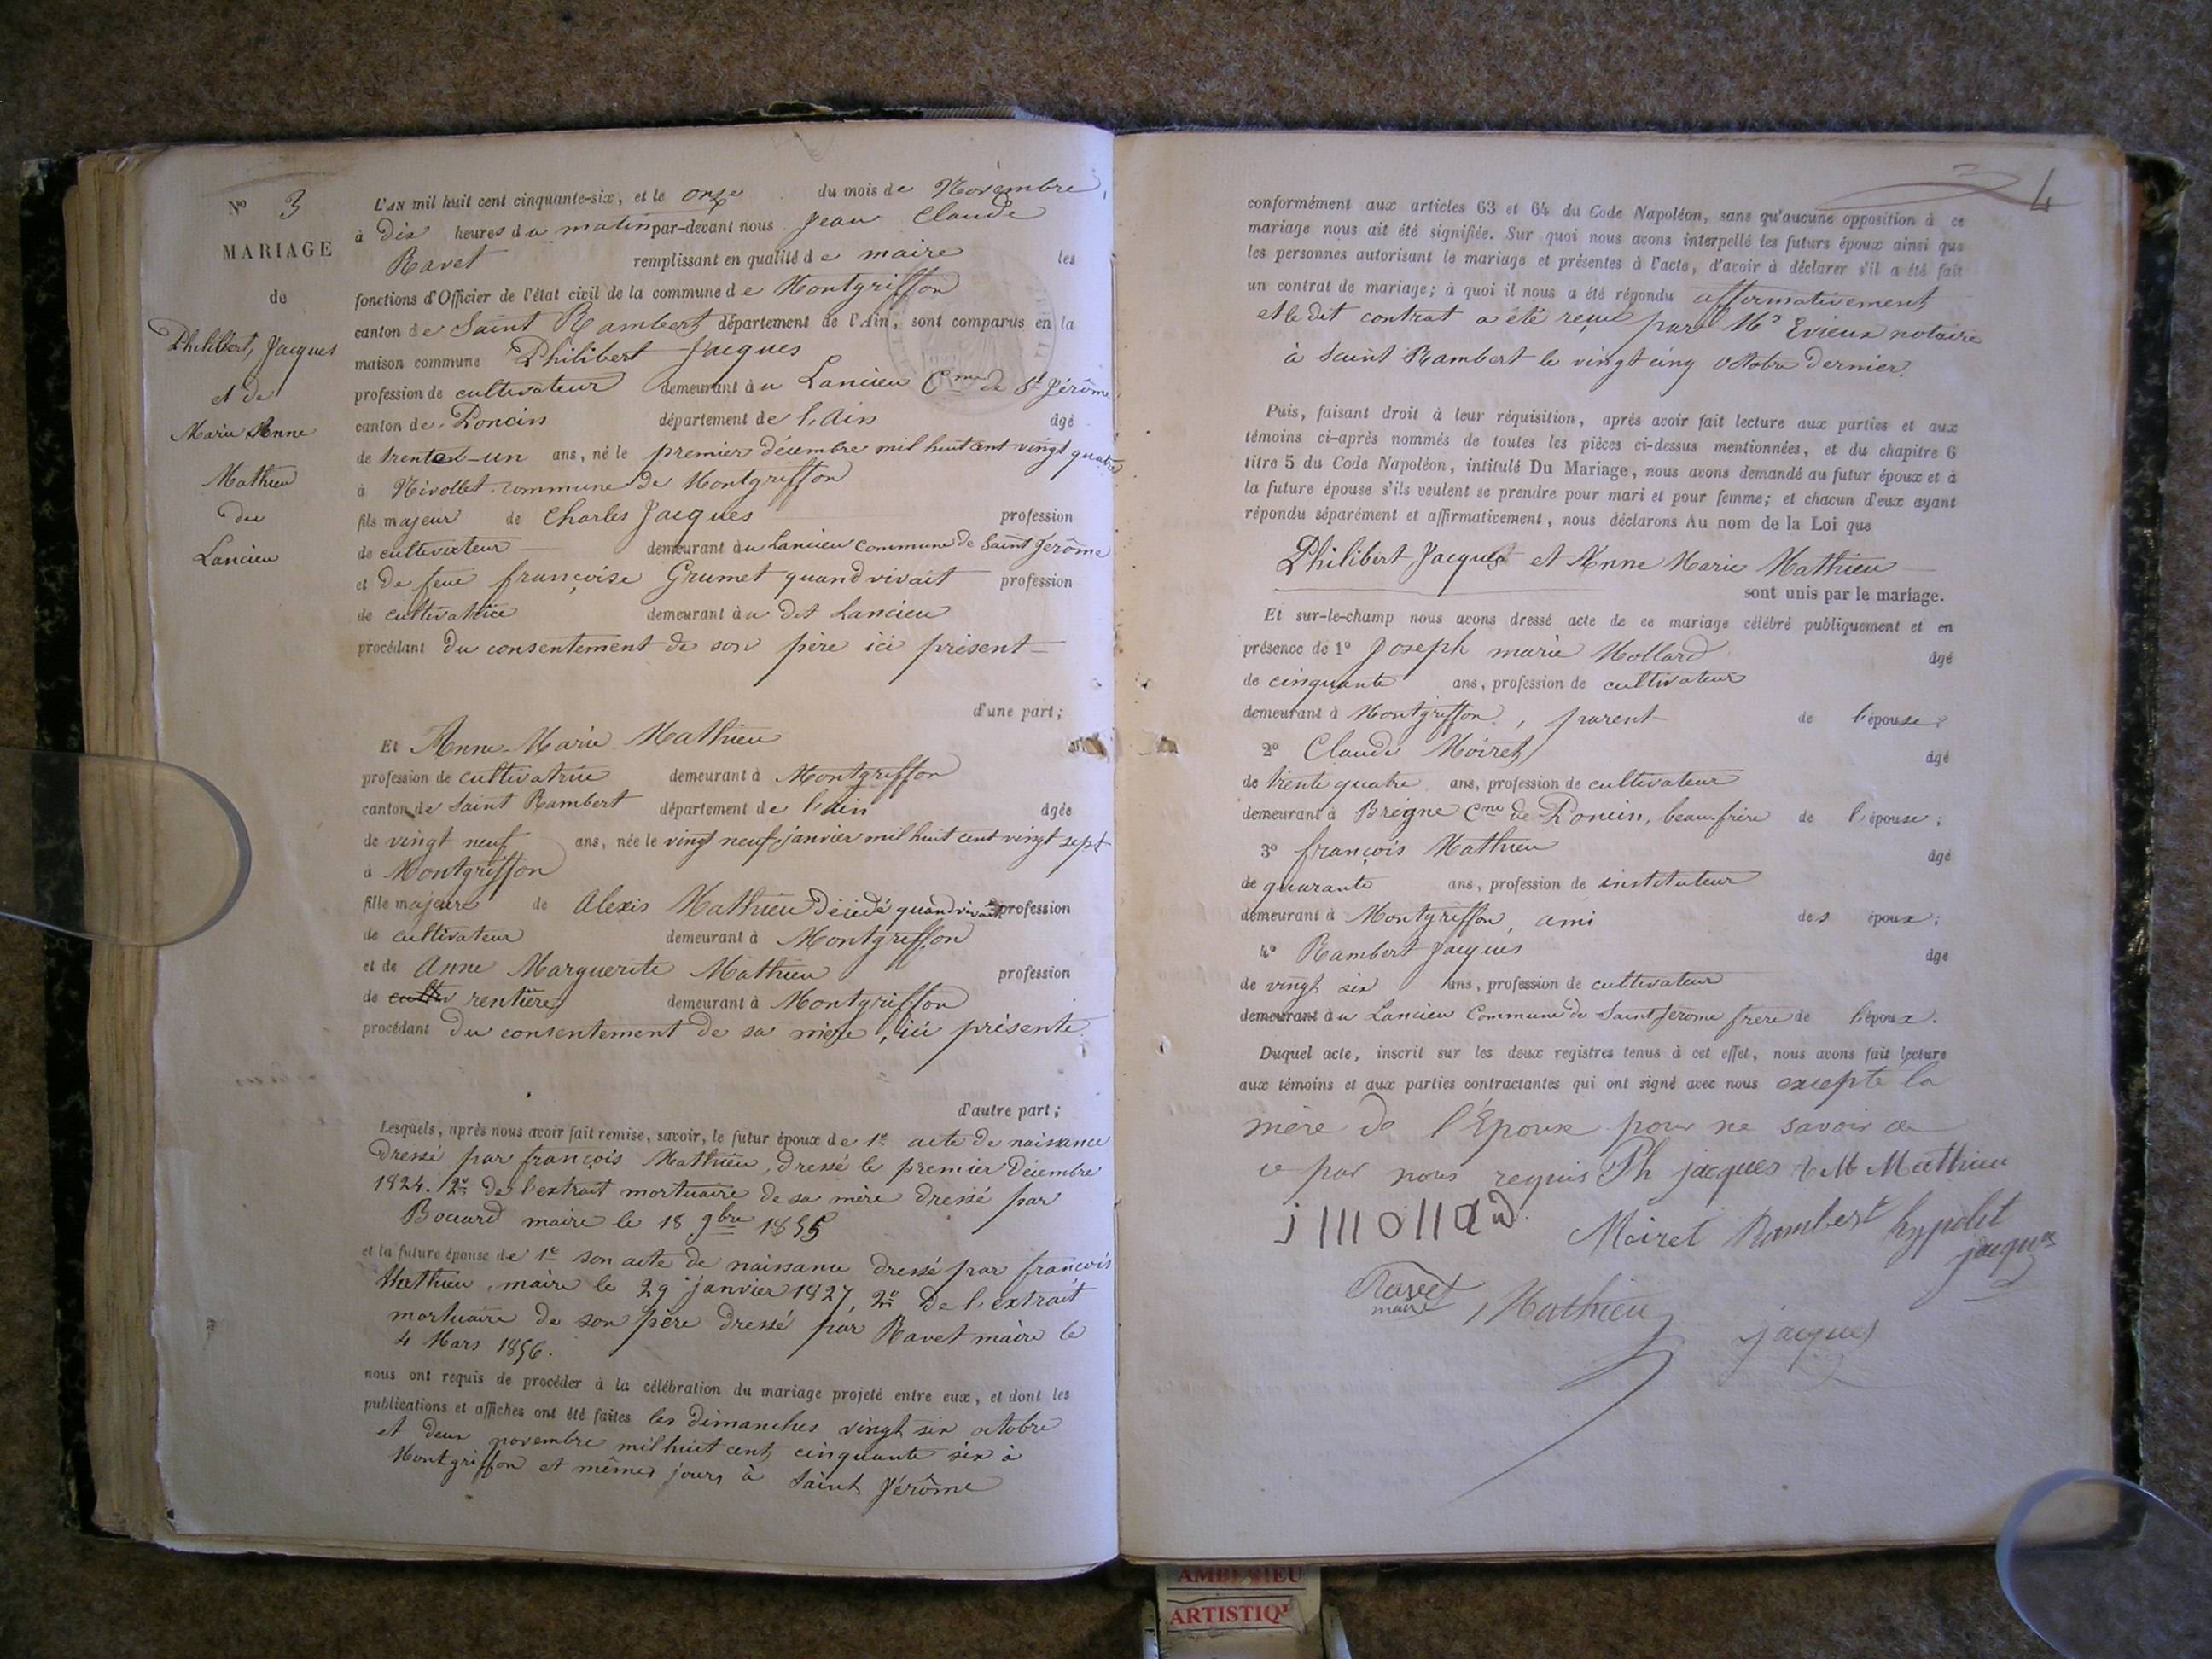 N° 3
MARIAGE
de
Philibert, Jacques
et de
Marie Anne
Mathieu
du
Lancieu
L'AN mil huit cent cinquante-six, et le onze du mois de Novembre,
à dix heures du matin par-devant nous Jean Claude
Ravet remplissant en qualité de maire les
fonctions d'Officier de l'état civil de la commune de Montgriffon
canton de Saint Rambert, département de l'Ain, sont comparus en la
maison commune Philibert Jacques
profession de cultivateur demeurant à u Lancieu Cne de St Jérôme
canton de Poncin département de l'Ain âgé
de trente et-un ans, né le premier décembre mil huit cent vingt quatre
à Nivollet commune de Montgriffon
fils majeur de Charles Jacques profession
de cultivateur demeurant au Lancieu commune de Saint Jérôme
et De feue françoise Grumet quand vivait profession
de cultivatrice demeurant au dit Lancieu
procédant du consentement de son père ici présent
d'une part;
Et Anne-Marie Mathieu
profession de cultivatrice demeurant à Montgriffon
canton de Saint Rambert département de l'ain âgée
de vingt neuf ans, née le vingt neuf janvier mil huit cent vingt sept
à Montgriffon
fille majeure de Alexis Mathieu décédé quand vivait profession
de cultivateur demeurant à Montgriffon
et de Anne Marguerite Mathieu profession
de cultiv rentière demeurant à Montgriffon
procédant du consentement de sa mère, ici présente
d'autre part;
Lesquels, après nous avoir fait remise, savoir, le futur époux de 1° acte de naissance
dressé par françois Mathieu, dressé le premier décembre
1824. 2° de l'extrait mortuaire de sa mère dressé par
Bouard maire le 18 9bre 1855
et la future épouse de 1° son acte de naissance dressé par françois
Mathieu, maire le 29 janvier 1827, 2° de l'extrait
mortuaire de son père dressé par Ravet maire le
4 Mars 1856.
nous ont requis de procéder à la célébration du mariage projeté entre eux, et dont les
publications et affiches ont été faites les dimanches vingt six octobre
et deux novembre mil huit cent cinquante six à
Montgriffon et mêmes jours à Saint Jérôme
4
conformément aux articles 63 et 64 du Code Napoléon, sans qu'aucune opposition à ce
mariage nous ait été signifiée. Sur quoi nous avons interpellé les futurs époux ainsi que
les personnes autorisant le mariage et présentes à l'acte, d'avoir à déclarer s'il a été fait
un contrat de mariage; à quoi il nous a été répondu affirmativement
et le dit contrat a été reçu par Me Evieux notaire
à Saint Rambert le vingt cinq octobre dernier.
Puis, faisant droit à leur réquisition, après avoir fait lecture aux parties et aux
témoins ci-après nommés de toutes les pièces ci-dessus mentionnées, et du chapitre 6
titre 5 du Code Napoléon, intitulé Du Mariage, nous avons demandé au futur époux et à
la future épouse s'ils veulent se prendre pour mari et pour femme; et chacun d'eux ayant
répondu séparément et affirmativement, nous déclarons Au nom de la Loi que
Philibert Jacques et Anne Marie Mathieu
sont unis par le mariage.
Et sur-le-champ nous avons dressé acte de ce mariage célébré publiquement et en
présence de 1° Joseph marie Mollard âgé
de cinquante ans, profession de cultivateur
demeurant à Montgriffon, parent de l'épouse;
2° Claude Moiret âgé
de trente quatre ans, profession de cultivateur
demeurant à Breigne Cne de Poncin, beau frère de l'épouse;
3° françois Mathieu âgé
de quarante ans, profession de instituteur
demeurant à Montgriffon, ami des époux;
4° Rambert Jacques âgé
de vingt six ans, profession de cultivateur
demeurant au Lancieu Commune de Saint Jérome frère de l'époux.
Duquel acte, inscrit sur les deux registres tenus à cet effet, nous avons fait lecture
aux témoins et aux parties contractantes qui ont signé avec nous excepté la
mère de l'Epouse pour ne savoir de
ce par nous requis Ph jacques A M Mathieu
j m mollard Moiret Rambert hypolit
jacques
Ravet
maire Mathieu jacques
AMBERIEU
ARTISTIQ